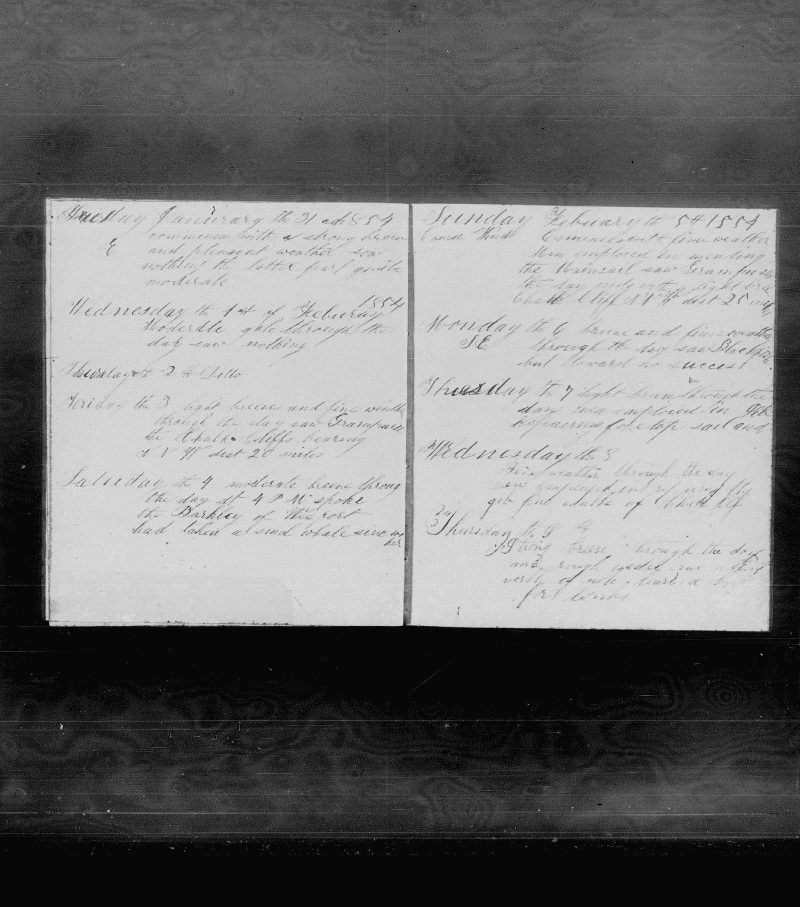 Tuesday Janurary th 31 1854
commences with a strong breeze
E and pleasant weather saw
nothing the latter part quite
moderate
Wednesday th 1st of Feburay 1854
Moderate gale through the
day saw nothing
Thursday th 2d Ditto
Feriday the 3 light breeze and fine weath
through the day saw Grampuses
the Chalk Cliffs bearing
N N W dist 20 miles
Saturday th 4 moderate breeze throug
the day at 4 P M spoke
the Barkley of Wesport
had taken whale since
her
Sunday Febuary th 5th 1854
Course Wind Comences with fine weather
Men employed in mending
the Mainsail saw Grampuses
the day ends with a light bree
Chalk Cliff N N W dist 25 mils
Monday th 6 breeze and fine weathe
S E through th day saw Blackfish
but lowerd no success
Thuesday th 7 light breeze through the
day men employed in
fore top sail and
Wednesday th 8
Fine weather through the day
men employed in
of Chalk Clif
Thursday th 9th
Strong breeze through the day
and rough weather saw
worth of note
for